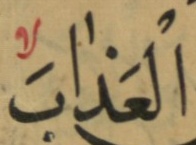 الْعَذَابَ ۙ